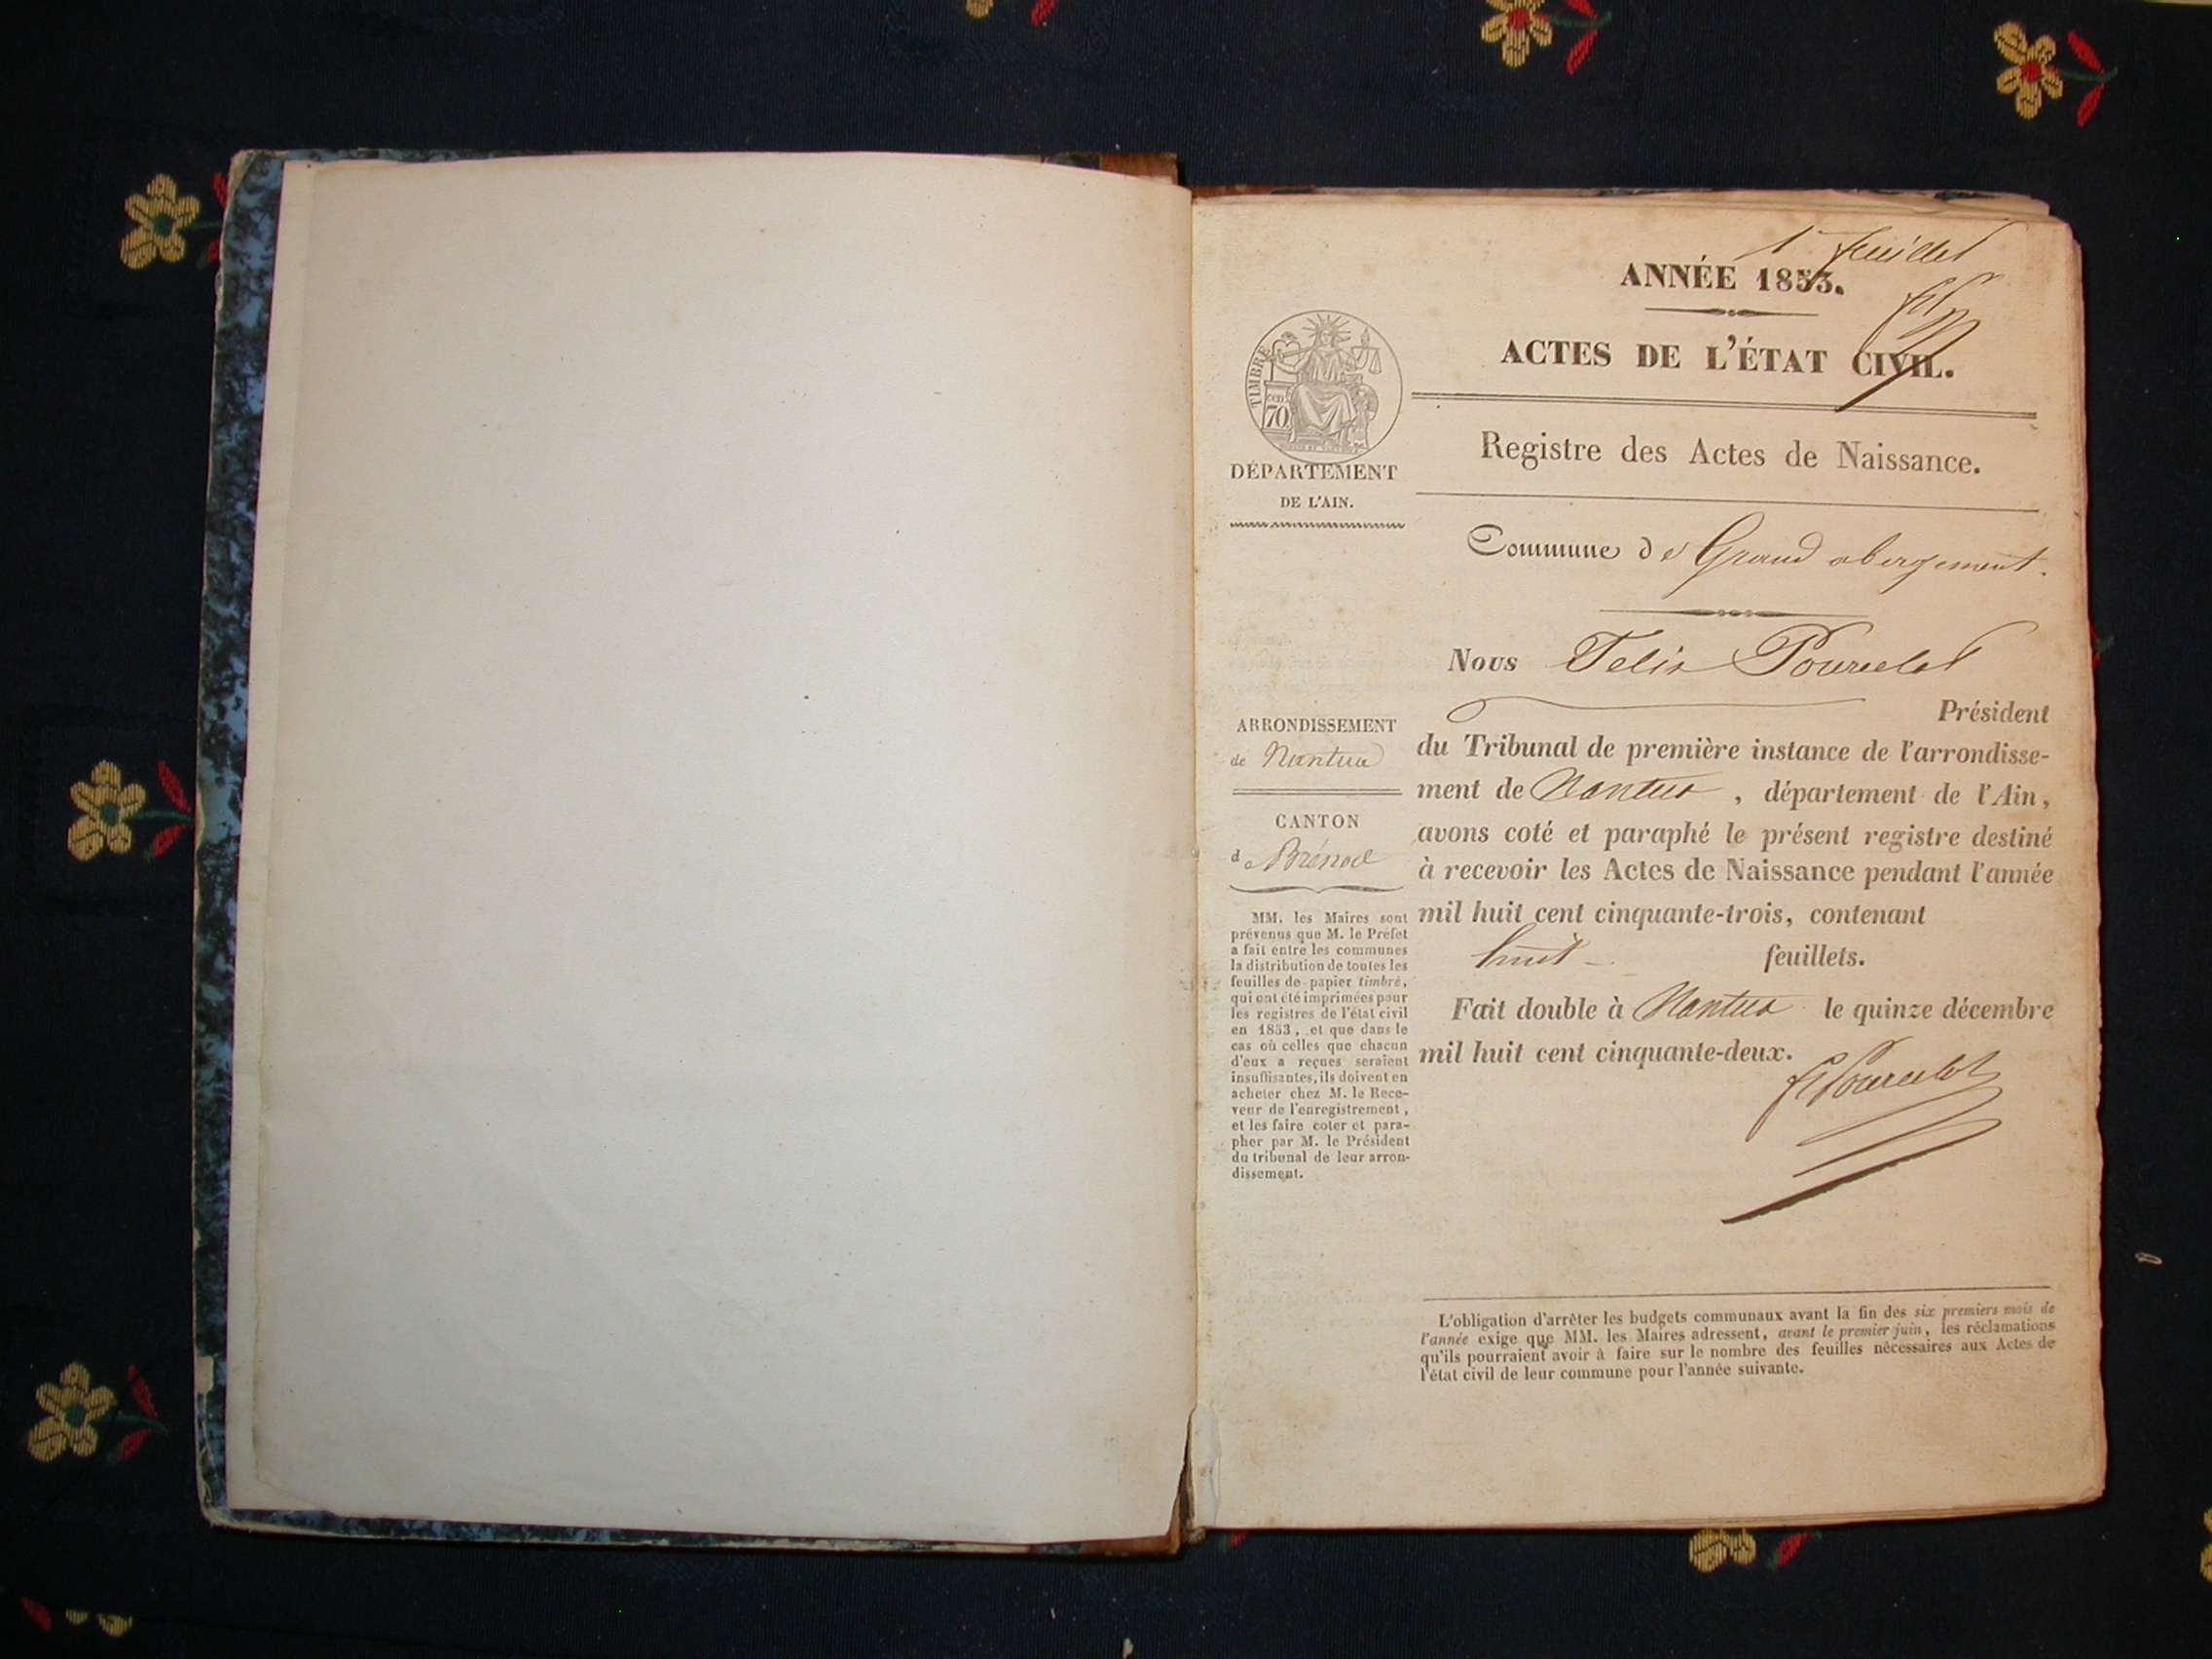 1er feuillet
ANNÉE 1853.
ACTES DE L'ÉTAT CIVIL.
TIMBRE
70
DÉPARTEMENT
DE L'AIN.
Registre des Actes de Naissance.
Commune de Grand abergement.
Nous Felix Pourcelot
Président
du Tribunal de première instance de l'arrondisse-
ment de Nantua, département de l'Ain,
avons coté et paraphé le présent registre destiné
à recevoir les Actes de Naissance pendant l'année
mil huit cent cinquante-trois, contenant
huit feuillets.
Fait double à Nantua le quinze décembre
mil huit cent cinquante-deux.
Pourcelot
ARRONDISSEMENT
de Nantua
CANTON
de Brénod
MM. les Maires sont
prévenus que M. le Préfet
a fait entre les communes
la distribution de toutes les
feuilles de papier timbré,
qui ont été imprimées pour
les registres de l'état civil
en 1853, et que dans le
cas où celles que chacun
d'eux a reçues seraient
insuffisantes, ils doivent en
acheter chez M. le Rece-
veur de l'enregistrement,
et les faire coter et para-
pher par M. le Président
du tribunal de leur arron-
dissement.
L'obligation d'arrêter les budgets communaux avant la fin des six premiers mois de
l'année exige que MM. les Maires adressent, avant le premier juin, les réclamations
qu'ils pourraient avoir à faire sur le nombre des feuilles nécessaires aux Actes de
l'état civil de leur commune pour l'année suivante.